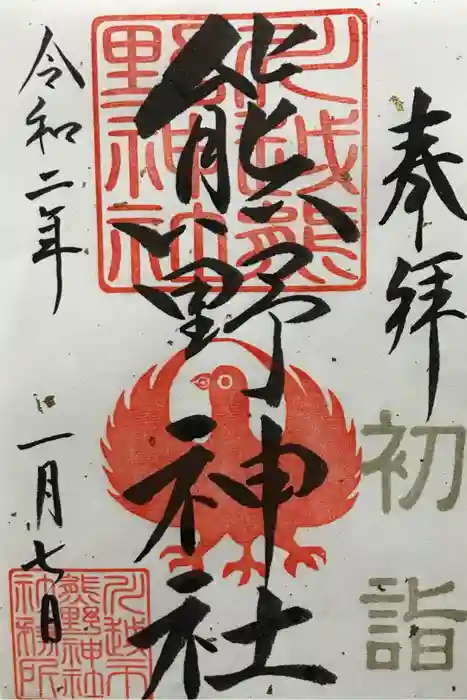 奉拝
初詣
熊野神社
川越熊野神社
令和二年
一月七日
川越市
熊野神社
社務所